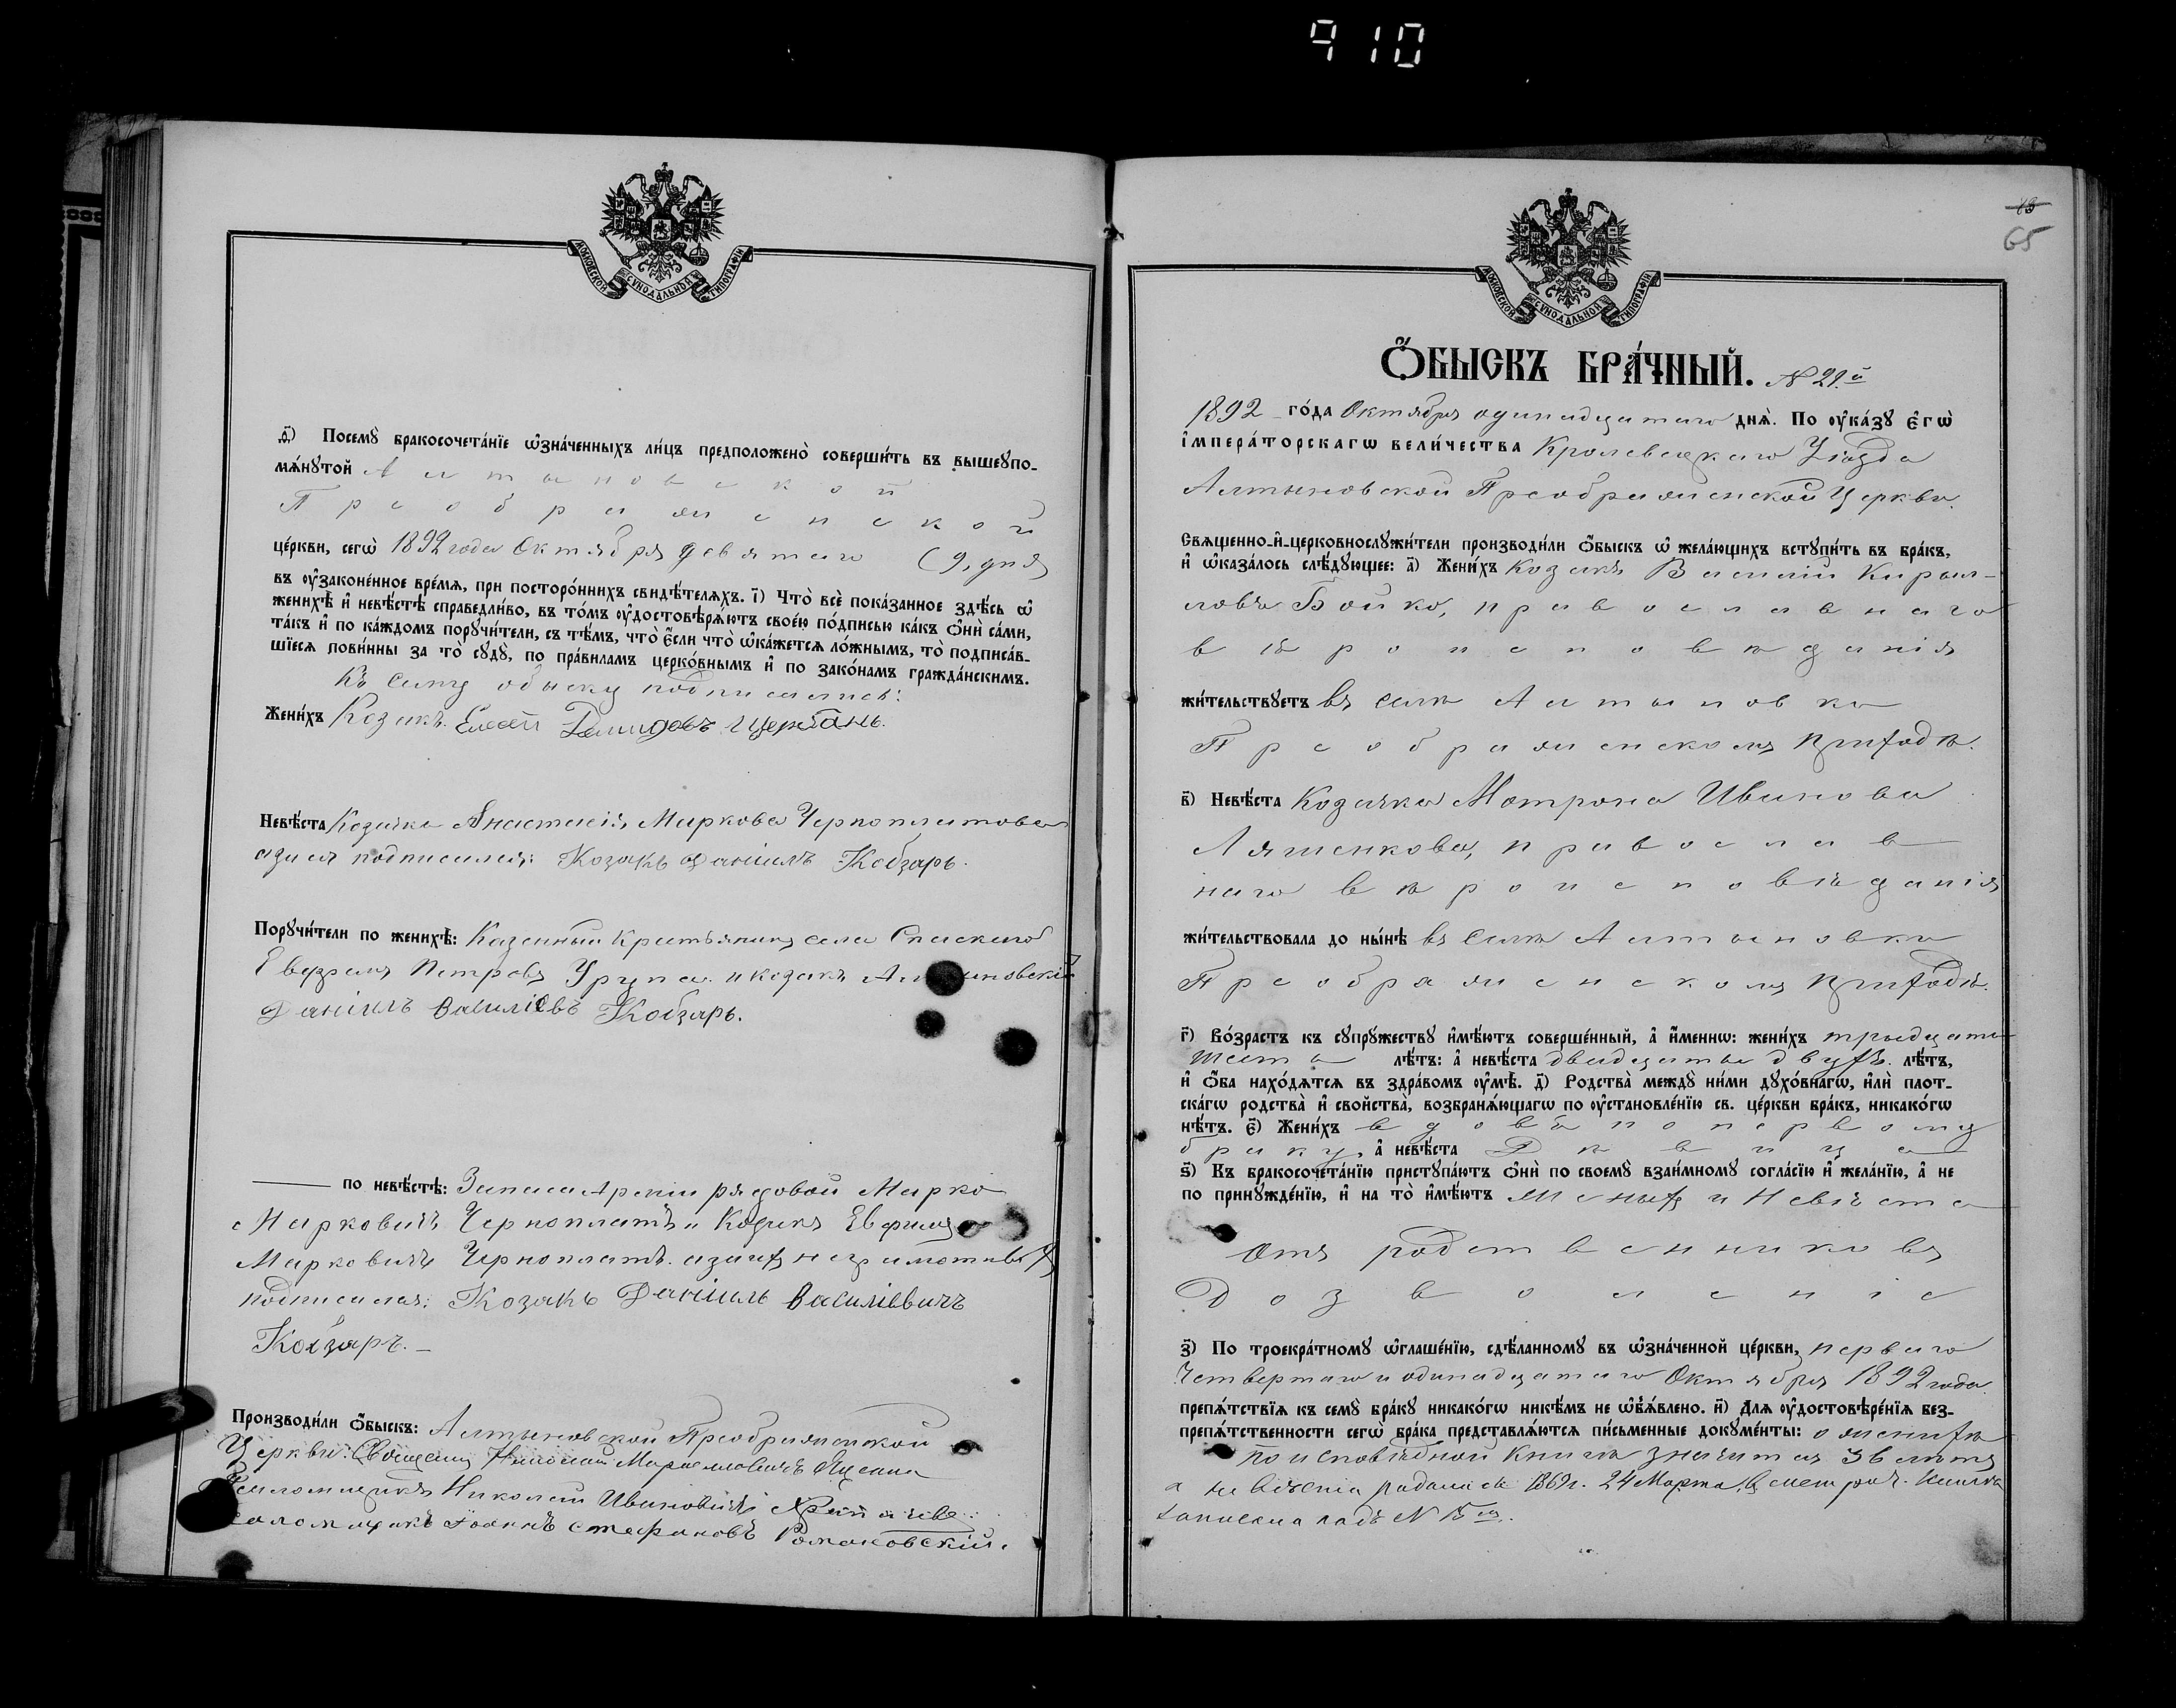 910
МОСКОВСКОЙ СѴНОДАЛЬНОЙ ТИПОГРАФІИ
Ѳ҃) Посемꙋ̀ бракосочета́нїе ѡ҆зна́ченныхъ ли́цъ предположено̀ соверши́ть въ вышеꙋпо-
мѧ́нꙋтой Алтыновской
Преображенской
це́ркви, сегѡ̀ 1892 года Октября девятаго (9, дня)
въ ᲂу҆законе́нное вре́мѧ, при посторо́ннихъ свидѣ́телѧхъ. І҃) Что̀ всѐ пока́занное здѣ́сь ѡ҆
женихѣ̀ и҆ невѣ́стѣ справедли́во, въ то́мъ ᲂу҆достовѣрѧ́ютъ свое́ю по́дписью ка́къ ѻ҆нѝ са́ми,
та́къ и҆ по ка́ждомъ порꙋчи́тели, съ тѣ́мъ, что̀ є҆́сли что̀ ѡ҆ка́жетсѧ ло́жнымъ, то̀ подписа́в-
шїесѧ пови́нны за то̀ сꙋдꙋ̀, по пра́виламъ церко́внымъ и҆ по зако́намъ гражда́нскимъ.
Къ сему обыску подписались:
Жени́хъ Козакъ Елисей Демидовъ
Невѣ́ста Козачка Анастасія Маркова Черноплатова
а за ея подписался: Козакъ Даніилъ Кобзарь.
Порꙋчи́тели по женихѣ̀: Казенный Крестьянинъ села Спаского
Петровъ Урупа. и козакъ Алтыновскій
Даніилъ Василіевъ Кобзарь.
по невѣ́стѣ: Запаса Арміи рядовой Марко
Марковичъ Черноплатъ и Козакъ Евфимъ
Марковичъ Черноплатъ. а за ихъ неграмотныхъ
подписался: Козакъ Даніилъ Василіевичъ
Кобзарь. —
Производи́ли ѻ҆́быскъ: Алтыновской Преображенской
Церкви: Священ. Николай
Псаломщикъ Николай Ивановичъ
Псаломщикъ Іоаннъ Стефановъ Ромаковскій.
13
65
МОСКОВСКОЙ СѴНОДАЛЬНОЙ ТИПОГРАФІИ
Ѻ҆́БЫСКЪ БРА́ЧНЫЙ. № 21.й
1892 го́да Октября одинадцатаго днѧ̀. По ᲂу҆ка́зꙋ є҆гѡ̀
і҆мпера́торскагѡ вели́чества Кролевецкаго Уѣзда
Алтыновской Преображенской Церкви.
Свѧще́нно-и҆-церковнослꙋжи́тели производи́ли ѻ҆́быскъ ѡ҆ жела́ющихъ встꙋпи́ть въ бра́къ,
и҆ ѡ҆каза́лось слѣ́дꙋющее: а҃) Жени́хъ Козакъ Василій Кирил-
ловъ Бойко, православнаго
вѣроисповѣданія
жи́тельствꙋетъ въ селѣ Алтыновкѣ
Преображенскомъ приходѣ.
в҃) Невѣ́ста Козачка Мотрона Иванова
Ляшенкова, православ
наго вѣроисповѣданія
жи́тельствовала до ны́нѣ въ селѣ Алтыновкѣ
Преображенскомъ приходѣ.
г҃) Во́зрастъ къ сꙋпрꙋ́жествꙋ и҆мѣ́ютъ соверше́нный, а҆ и҆́меннѡ: жени́хъ тридцати
шести лѣ́тъ: а҆ невѣ́ста двадцати двухъ лѣ́тъ,
и҆ ѻ҆́ба нахо́дѧтсѧ въ здра́вомъ ᲂу҆мѣ̀. д҃) Родства̀ междꙋ̀ ни́ми дꙋхо́внагѡ, и҆лѝ плот-
ска́гѡ родства̀ и҆ свойства̀, возбранѧ́ющагѡ по ᲂу҆становле́нїю св. це́ркви бра́къ, никако́гѡ
нѣ́тъ. є҃) Жени́хъ вдовъ по первому
браку, а҆ невѣ́ста Дѣвица
ѕ҃) Къ бракосочета́нїю пристꙋпа́ютъ ѻ҆нѝ по своемꙋ̀ взаи́мномꙋ согла́сїю и҆ жела́нїю, а҆ не
по принꙋжде́нїю, и҆ на то̀ и҆мѣ́ютъ Женихъ и Невѣста
отъ родственниковъ
Дозволеніе
з҃) По троекра́тномꙋ ѡ҆глаше́нїю, сдѣ́ланномꙋ въ ѡ҆зна́ченной це́ркви, перваго
четвертаго и одинадцатаго Октября 1892 года.
препѧ́тствїѧ къ семꙋ̀ бра́кꙋ никако́гѡ никѣ́мъ не ѡ҆б̾ѧ́влено. и҃) Длѧ ᲂу҆достовѣре́нїѧ без-
препѧ́тственности сегѡ̀ бра́ка представлѧ́ютсѧ пи́сьменные докꙋме́нты: о женихѣ
по исповѣдной книгѣ значится 36 лѣтъ
а невѣста родилась 1869 г. 24 Марта, в метрич. книгѣ
записана подъ №